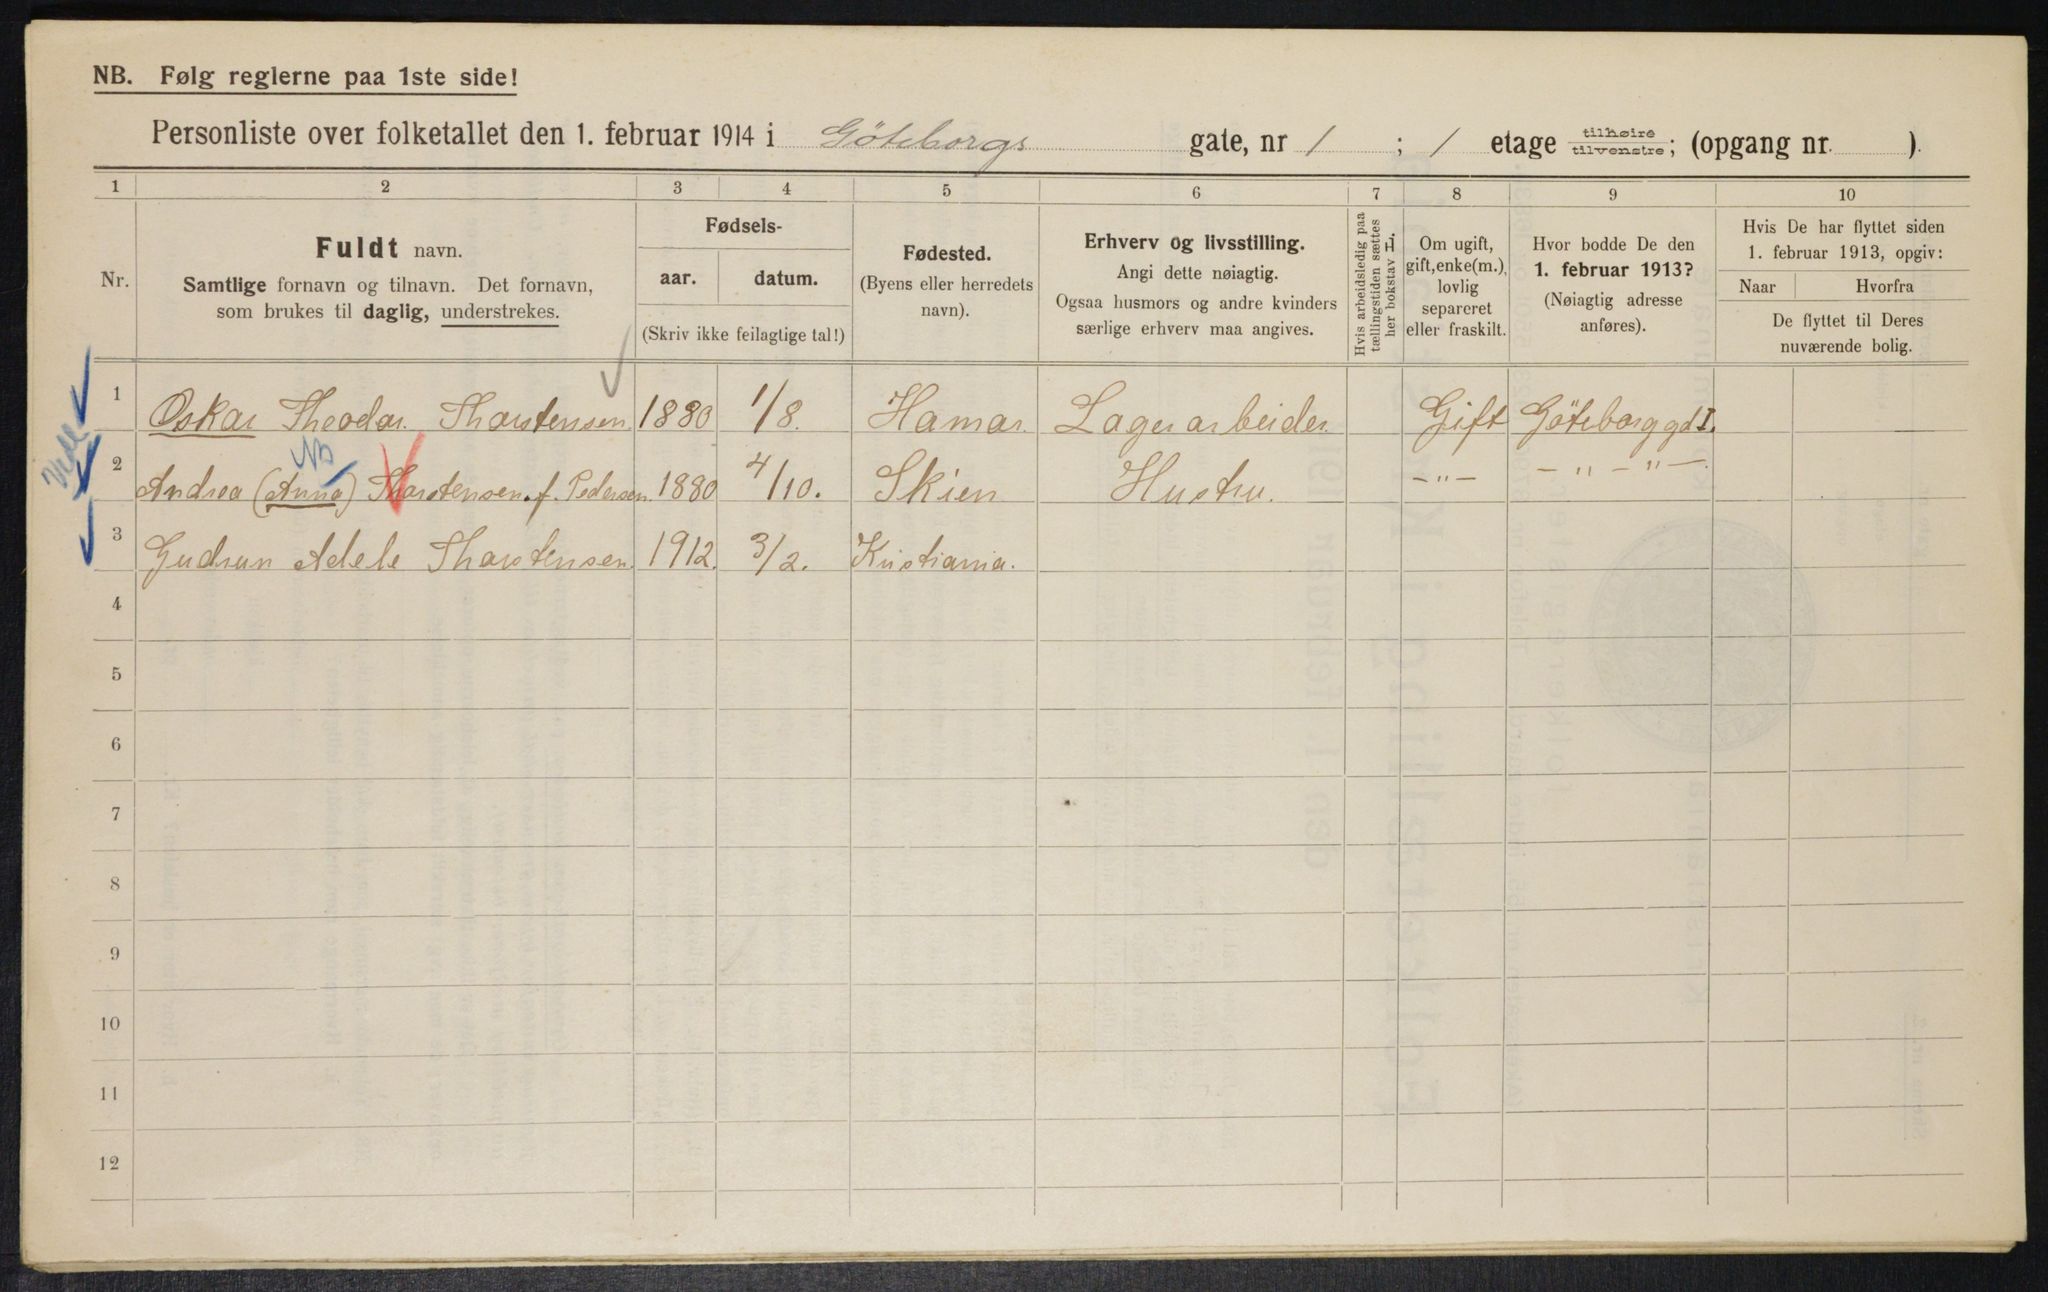 NB. Følg reglerne paa 1ste side!
Personliste over folketallet den 1. februar 1914 i Göteborgs gate, nr 1 ; 1 etage tilhøire tilvenstre; (opgang nr. ).
1 2 3 4 5 6 7 8 9 10
Nr.
Fuldt navn.
Samtlige fornavn og tilnavn. Det fornavn,
som brukes til daglig, understrekes.
Fødsels-
aar. datum.
(Skriv ikke feilagtige tal!)
Fødested.
(Byens eller herredets
navn).
Erhverv og livsstilling.
Angi dette nøiagtig.
Ogsaa husmors og andre kvinders
særlige erhverv maa angives.
Hvis arbeidsledig paa
tællingstiden sættes
her bokstav L.
Om ugift,
gift, enke(m.),
lovlig
separeret
eller fraskilt.
Hvor bodde De den
1. februar 1913?
(Nøiagtig adresse
anføres).
Hvis De har flyttet siden
1. februar 1913, opgiv:
Naar Hvorfra
De flyttet til Deres
nuværende bolig.
1 Oskar Theodor Thorstensen 1880 1/8. Hamar. Lagerarbeider. Gift Göteborggd 1.
NB
2 Andrea (Anna) Thorstensen. f. Pedersen. 1880 4/10. Skien Hustru. -"- -"-"-
3 Gudrun Adele Thorstensen. 1912. 3/2. Kristiania.
4
5
6
7
8
9
10
11
12